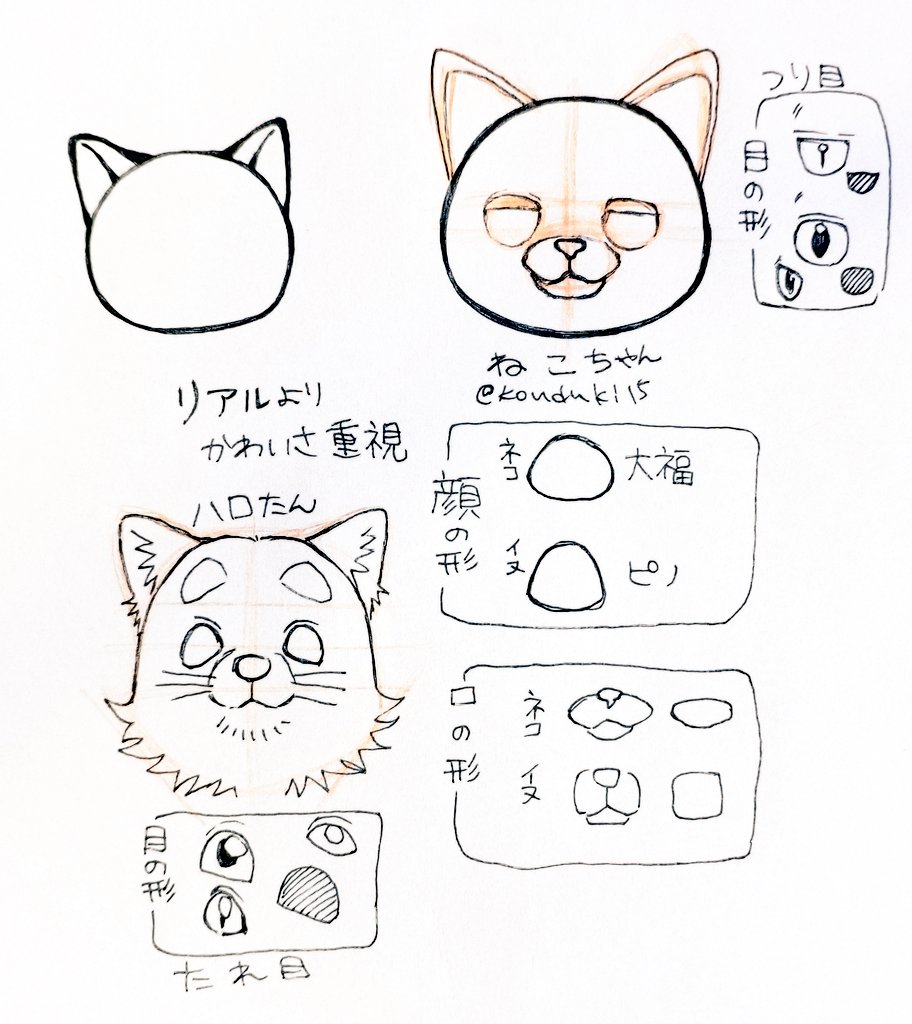 つり目
目の形
ねこちゃん
@kouduki15
リアルより
かわいさ重視
顔の形
ネコ
大福
イヌ
ピノ
ハロたん
口の形
ネコ
イヌ
目の形
たれ目